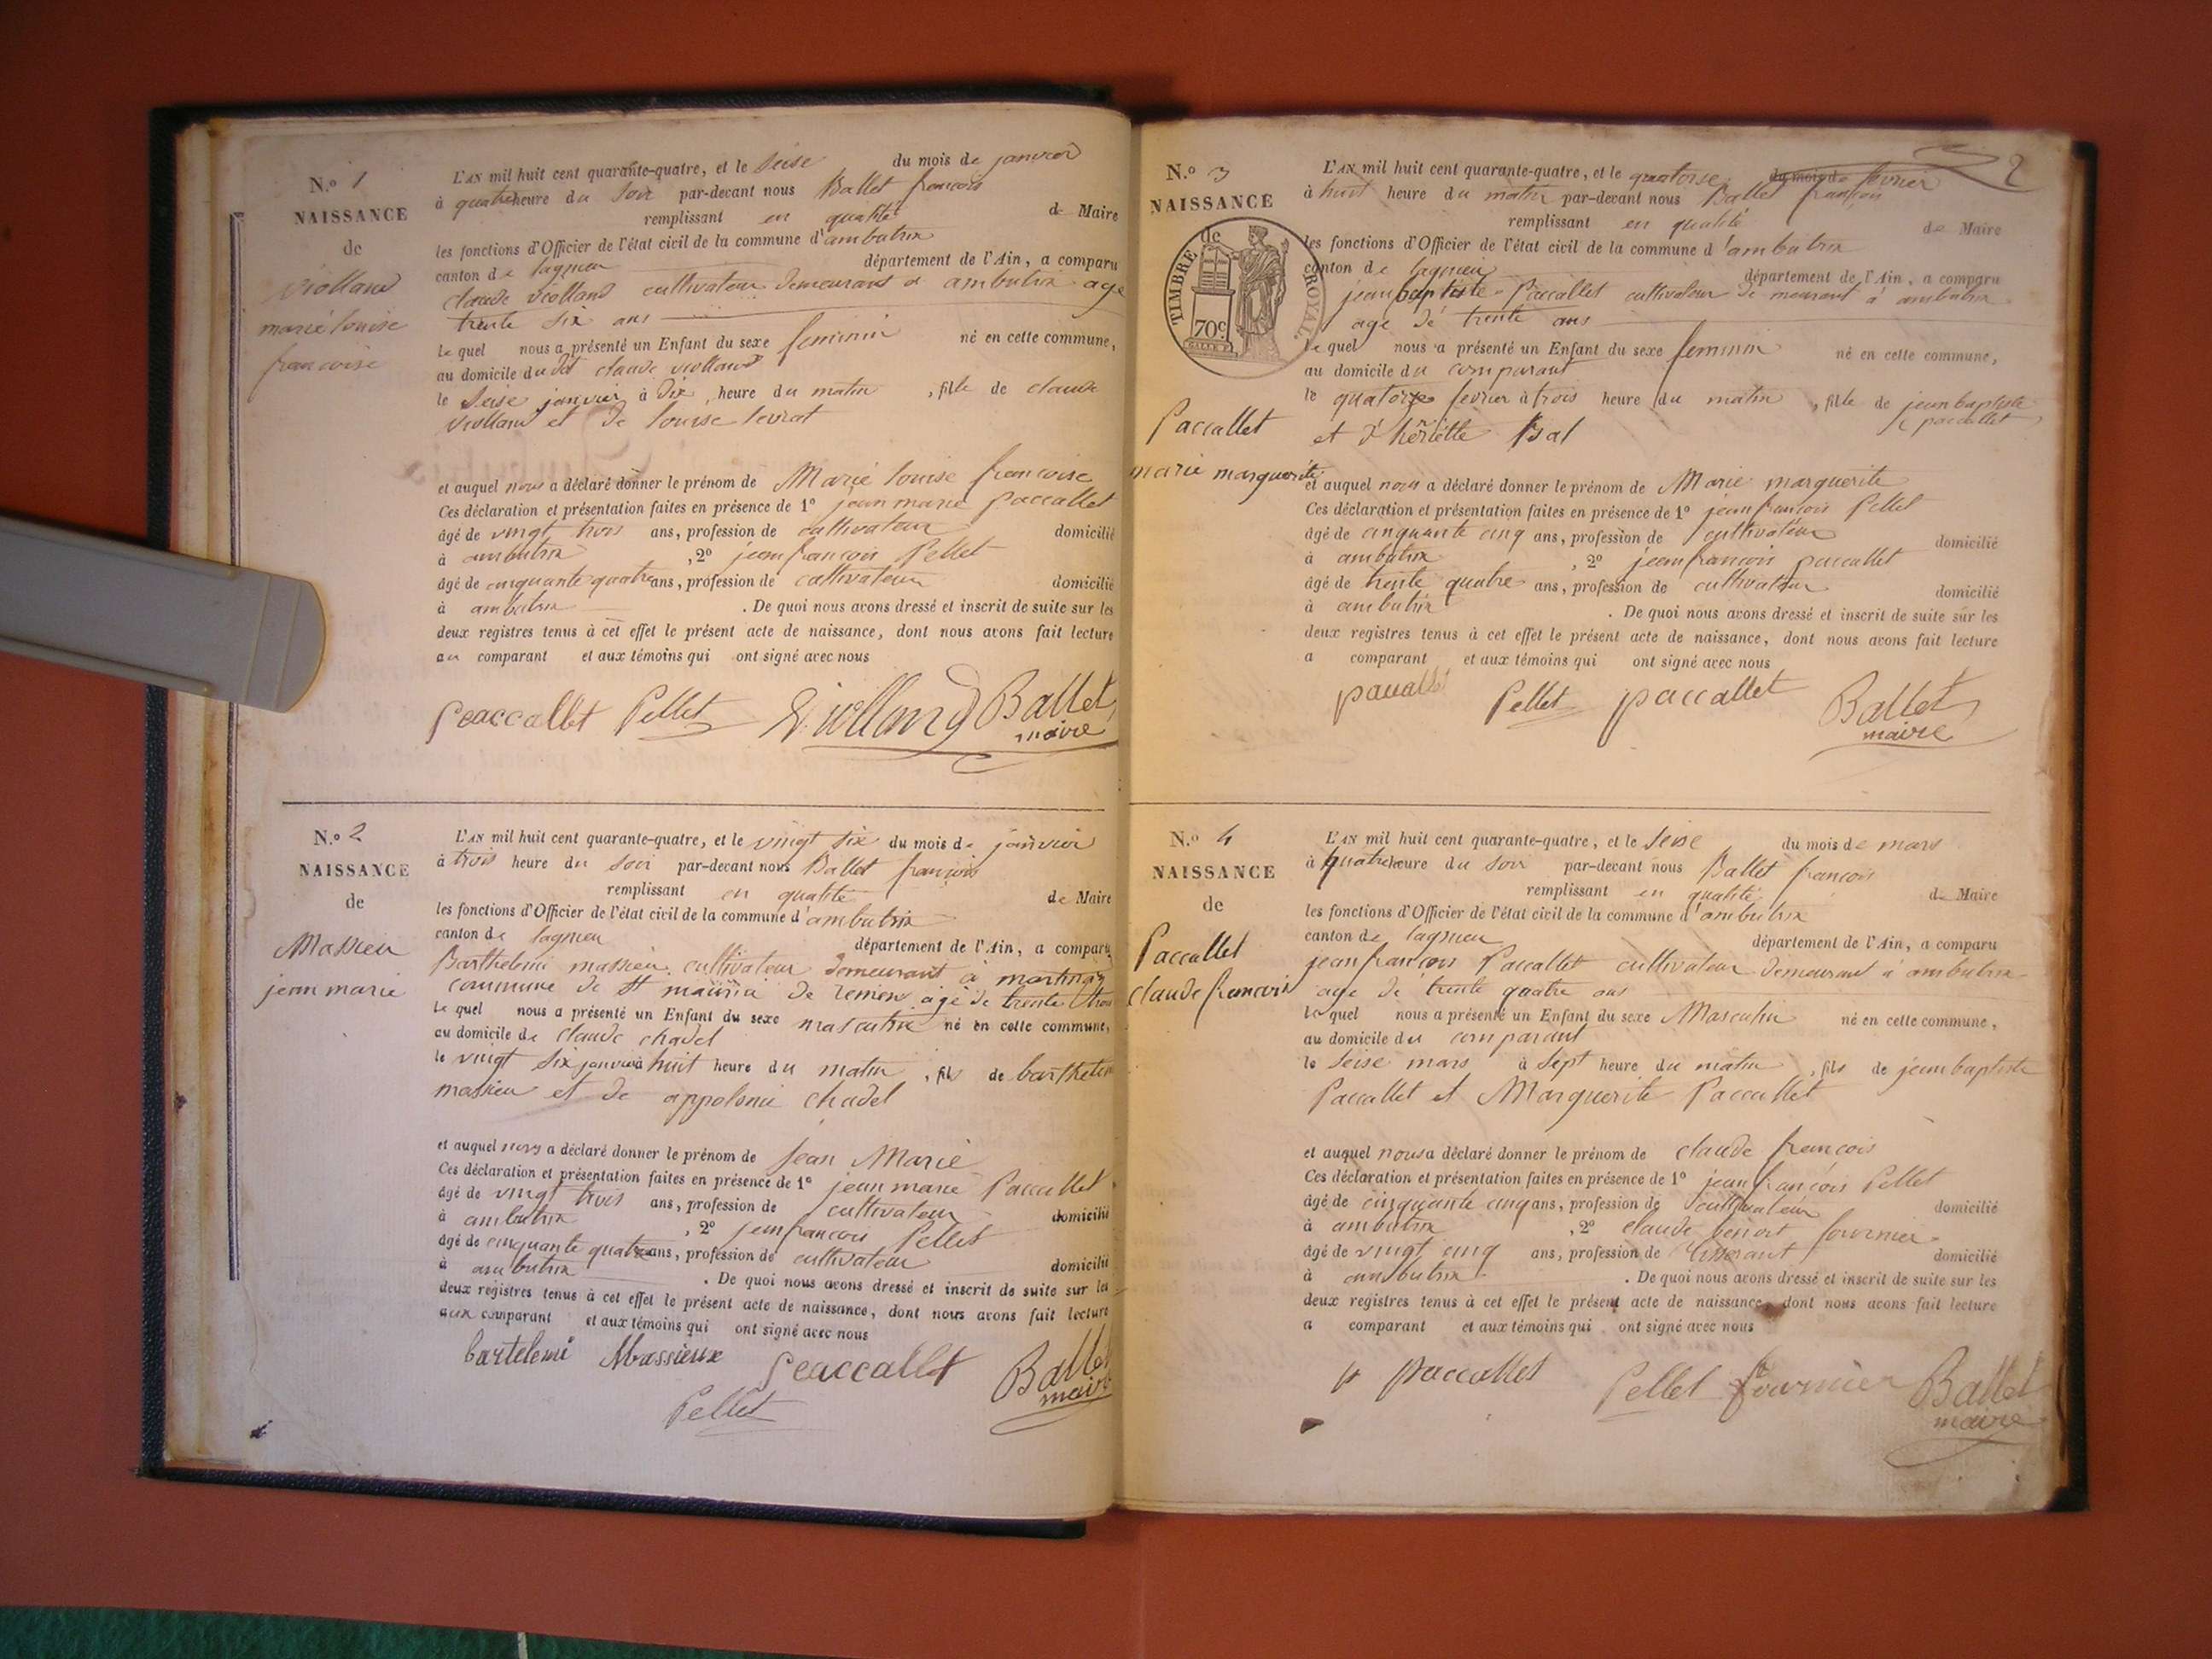 N.º 1
NAISSANCE
de
violland
marie louise
francoise
L'AN mil huit cent quarante-quatre, et le seise du mois de janvier
à quatre heure du soir par-devant nous Ballet francois
remplissant en qualité de Maire
les fonctions d'Officier de l'état civil de la commune d'ambutrix
canton de lagnieu département de l'Ain, a comparu
claude violland cultivateur demeurant a ambutrix age
trente six ans
Le quel nous a présenté un Enfant du sexe feminin né en cette commune,
au domicile du dit claude violland
le seise janvier à dix heure du matin, fille de claude
violland et de louise levrat
et auquel nous a déclaré donner le prénom de Marie louise francoise
Ces déclaration et présentation faites en présence de 1º jean marie paccallet
âgé de vingt trois ans, profession de cultivateur domicilié
à ambutrix, 2º jean francois Pellet
âgé de cinquante quatre ans, profession de cultivateur domicilié
à ambutrix. De quoi nous avons dressé et inscrit de suite sur les
deux registres tenus à cet effet le présent acte de naissance, dont nous avons fait lecture
au comparant et aux témoins qui ont signé avec nous
Peaccallet Pellet Violland Ballet
maire
N.º 2
NAISSANCE
de
Massieu
jean marie
L'AN mil huit cent quarante-quatre, et le vingt six du mois de janvier
à trois heure du soir par-devant nous Ballet françois
remplissant en qualité de Maire
les fonctions d'Officier de l'état civil de la commune d'ambutrix
canton de lagnieu département de l'Ain, a comparu
Barthelemi massieu cultivateur demeurant à martinaz
commune de St de remens agé de trente trois
Le quel nous a présenté un Enfant du sexe masculin né en cette commune,
au domicile de claude chadel
le vingt six janvier à huit heure du matin, fils de barthelemi
massieu et de appolonie chadel
et auquel nous a déclaré donner le prénom de Jean Marie
Ces déclaration et présentation faites en présence de 1º jean marie Paccallet
âgé de vingt trois ans, profession de cultivateur domicilié
à ambutrix, 2º jean francois Pellet
âgé de cinquante quatre ans, profession de cultivateur domicilié
à ambutrix. De quoi nous avons dressé et inscrit de suite sur les
deux registres tenus à cet effet le présent acte de naissance, dont nous avons fait lecture
aux comparant et aux témoins qui ont signé avec nous
bartelemi Massieux Peaccallet Ballet
maire
Pellet
2
N.º 3
NAISSANCE
de
TIMBRE ROYAL.
70c
Paccallet
marie marguerite
L'AN mil huit cent quarante-quatre, et le quatorse du mois de fevrier
à huit heure du matin par-devant nous Ballet françois
remplissant en qualité de Maire
les fonctions d'Officier de l'état civil de la commune d'ambutrix
canton de lagnieu département de l'Ain, a comparu
jean baptiste Paccallet cultivateur demeurant a ambutrix
age de trente ans
Le quel nous a présenté un Enfant du sexe feminin né en cette commune,
au domicile du comparant
le quatorze fevrier à trois heure du matin, fille de jean baptiste
paccallet
et d'heriette
et auquel nous a déclaré donner le prénom de Marie marguerite
Ces déclaration et présentation faites en présence de 1º jean francois Pellet
âgé de cinquante cinq ans, profession de cultivateur domicilié
à ambutrix, 2º jean francois paccallet
âgé de trente quatre ans, profession de cultivateur domicilié
à ambutrix. De quoi nous avons dressé et inscrit de suite sur les
deux registres tenus à cet effet le présent acte de naissance, dont nous avons fait lecture
a comparant et aux témoins qui ont signé avec nous
Pellet paccallet Ballet
maire
N.º 4
NAISSANCE
de
Paccallet
claude francois
L'AN mil huit cent quarante-quatre, et le seise du mois de mars
à quatre heure du soir par-devant nous Ballet francois
remplissant en qualité de Maire
les fonctions d'Officier de l'état civil de la commune d'ambutrix
canton de lagnieu département de l'Ain, a comparu
jean francois Paccallet cultivateur demeurant à ambutrix
age de trente quatre ans
Le quel nous a présenté un Enfant du sexe Masculin né en cette commune,
au domicile du comparant
le seise mars à sept heure du matin, fils de jean baptiste
Paccallet et Marguerite Paccallet
et auquel nous a déclaré donner le prénom de claude francois
Ces déclaration et présentation faites en présence de 1º jean francois Pellet
âgé de cinquante cinq ans, profession de cultivateur domicilié
à ambutrix, 2º claude benoit fournier
âgé de vingt cinq ans, profession de tisserant domicilié
à ambutrix. De quoi nous avons dressé et inscrit de suite sur les
deux registres tenus à cet effet le présent acte de naissance, dont nous avons fait lecture
a comparant et aux témoins qui ont signé avec nous
paccallet Pellet fournier Ballet
maire